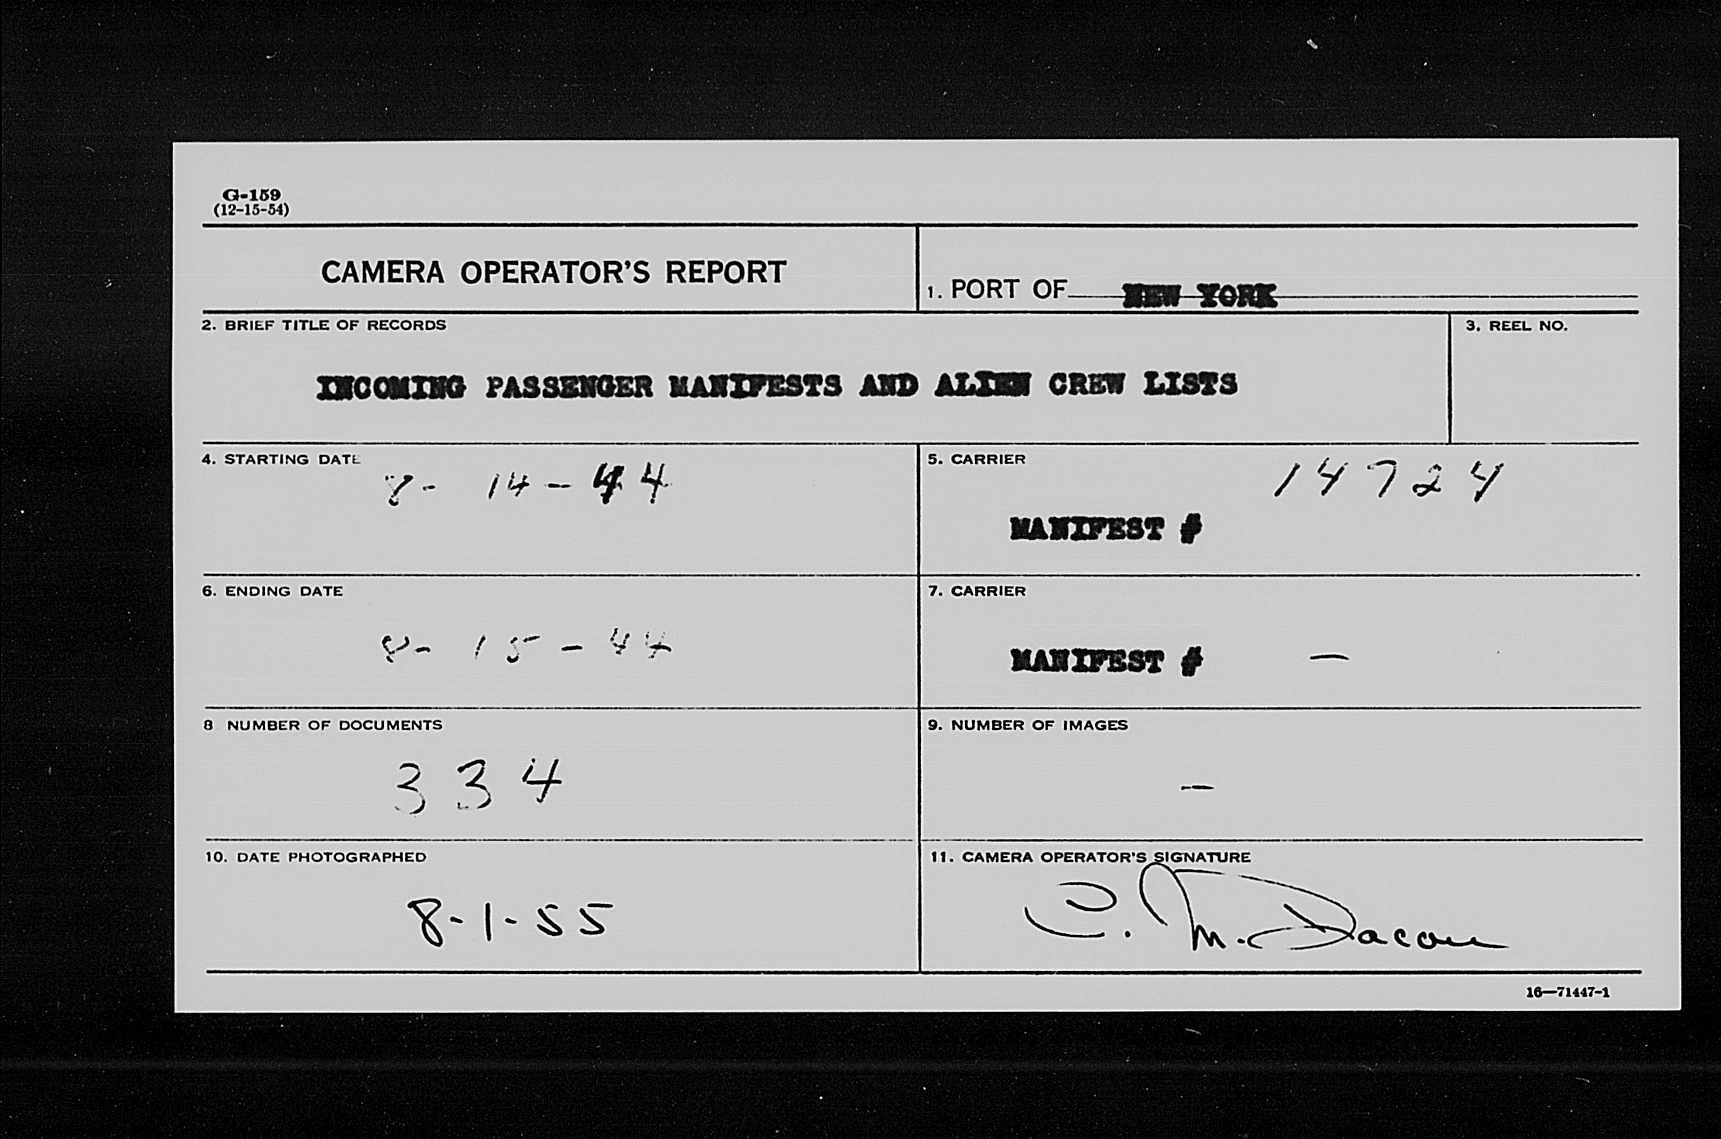 G-159
(12-15-54)
CAMERA OPERATOR'S REPORT
1. PORT OF NEW YORK
2. BRIEF TITLE OF RECORDS
INCOMING PASSENGER MANIFESTS AND ALIEN CREW LISTS
3. REEL NO.
4. STARTING DATE
8- 14-44
5. CARRIER
14724
MANIFEST #
6. ENDING DATE
8- 15-44
7. CARRIER
MANIFEST # —
8 NUMBER OF DOCUMENTS
334
9. NUMBER OF IMAGES
—
10. DATE PHOTOGRAPHED
8-1-55
11. CAMERA OPERATOR'S SIGNATURE
C. M.
16—71447-1